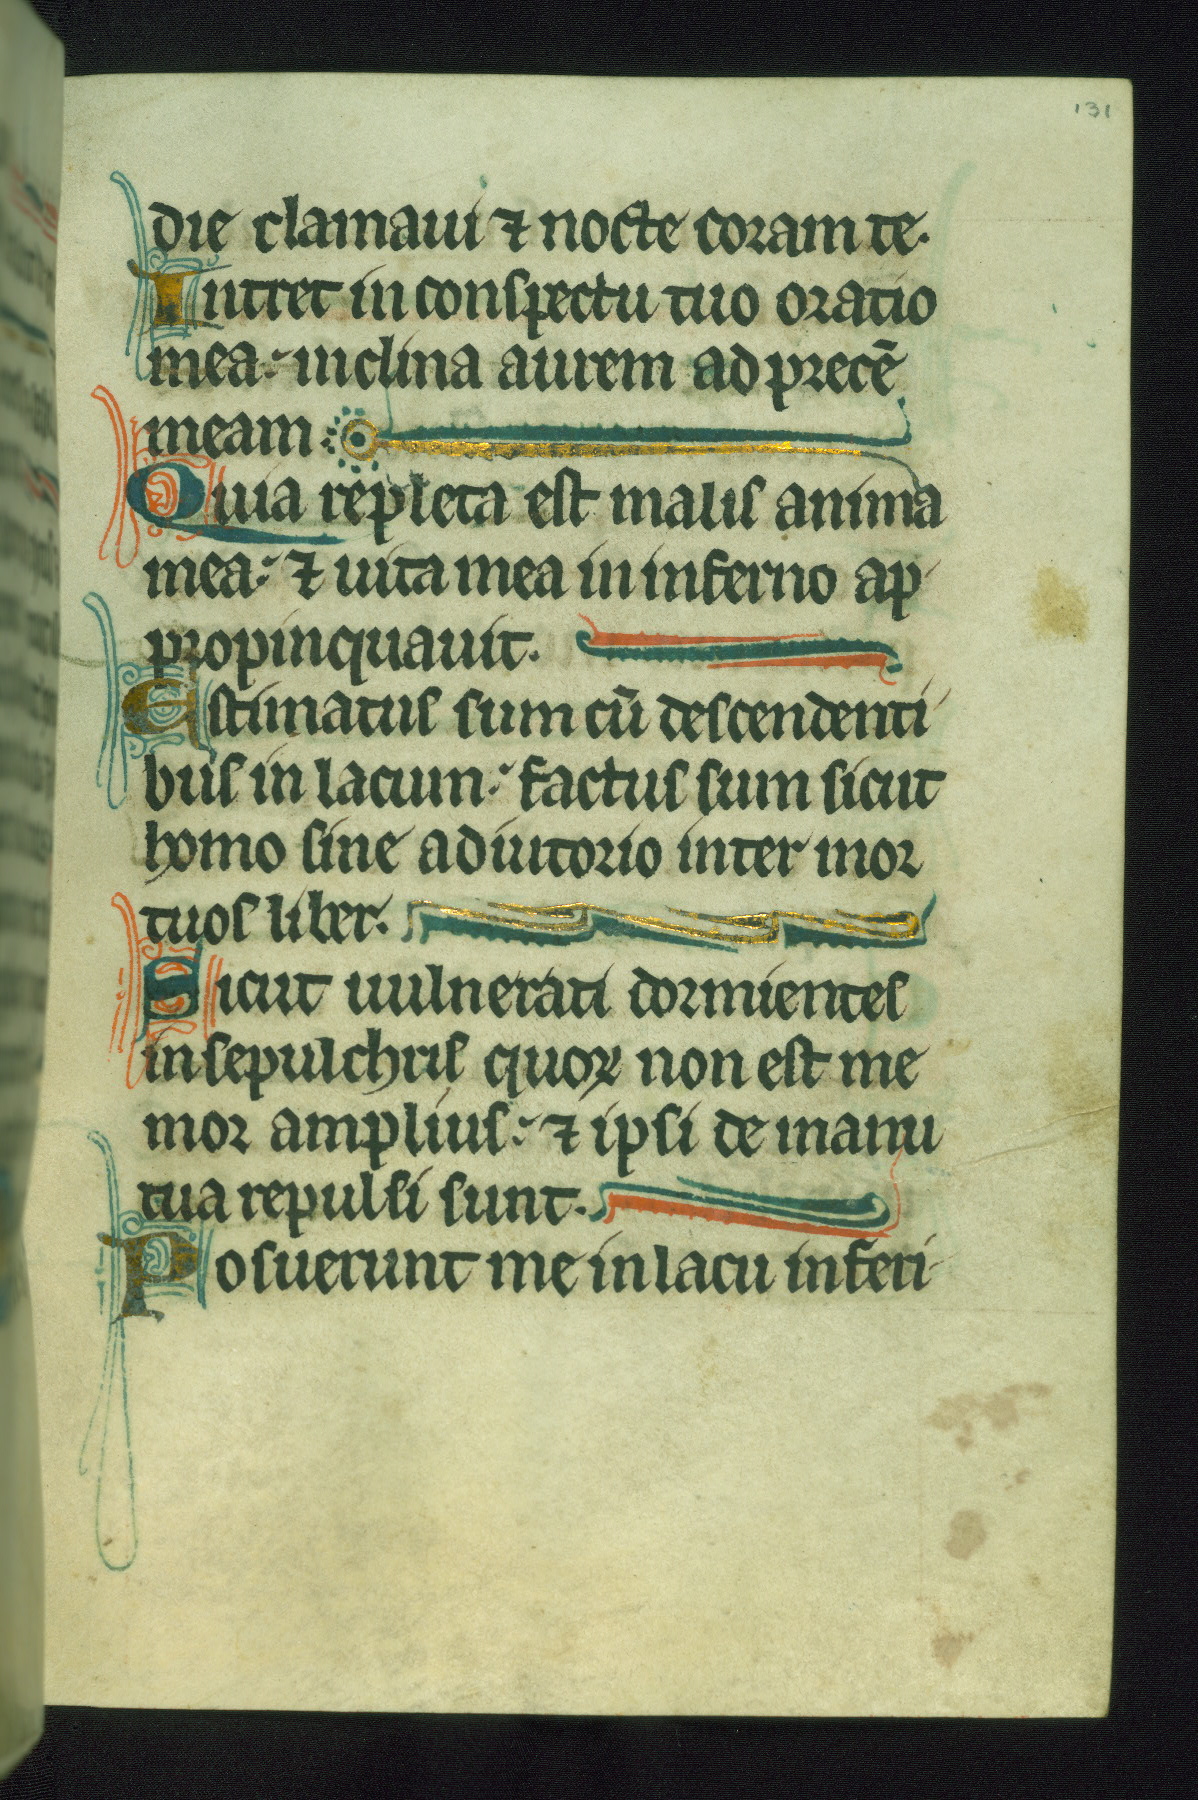 131
die clamaui ⁊ nocte coram te.
Intret in conspectu tuo oratio
mea: inclina aurem ad precē
meam:
Quia repleta est malis anima
mea: ⁊ uita mea in inferno ap
propinquauit.
Estimatus sum cū descendenti
bus in lacum: factus sum sicut
homo sine adiutorio inter mor
tuos liber.
Sicut uulnerati dormientes
in sepulchris quoꝝ non est me
mor amplius: ⁊ ipsi de manu
tua repulsi sunt.
Posuerunt me in lacu inferi